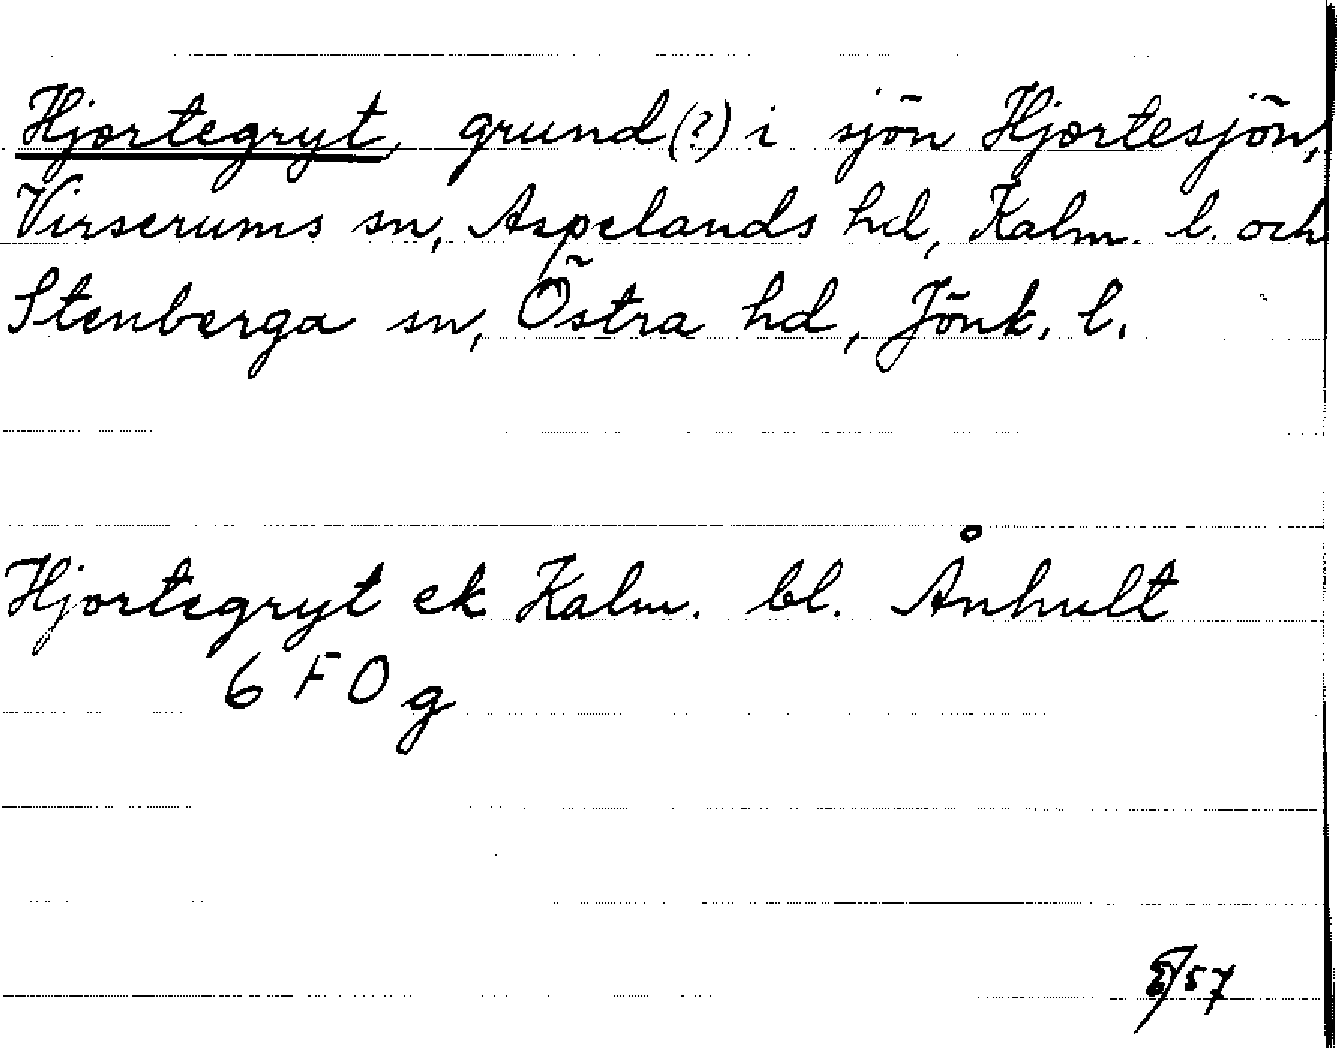 Hjortegryt, grund(?) i sjön Hjortesjön,
Virserums sn, Aspelands hd, Kalm. l. och
Stenberga sn, Östra hd, Jönk. l.
Hjortegryt ek Kalm. bl. Ånhult
6 F O g
57